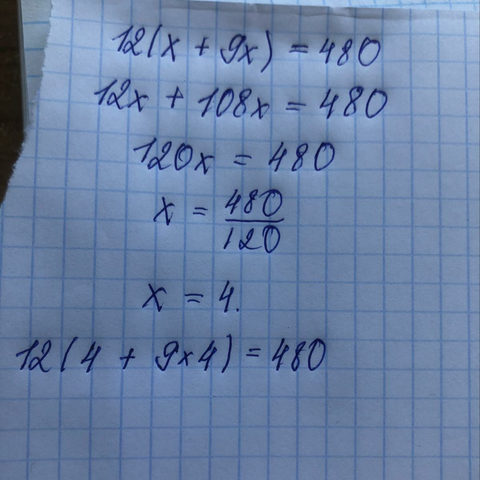 12(x + 9x) = 480
12x + 108x = 480
120x = 480
x = 480/120
x = 4.
12(4 + 9×4) = 480